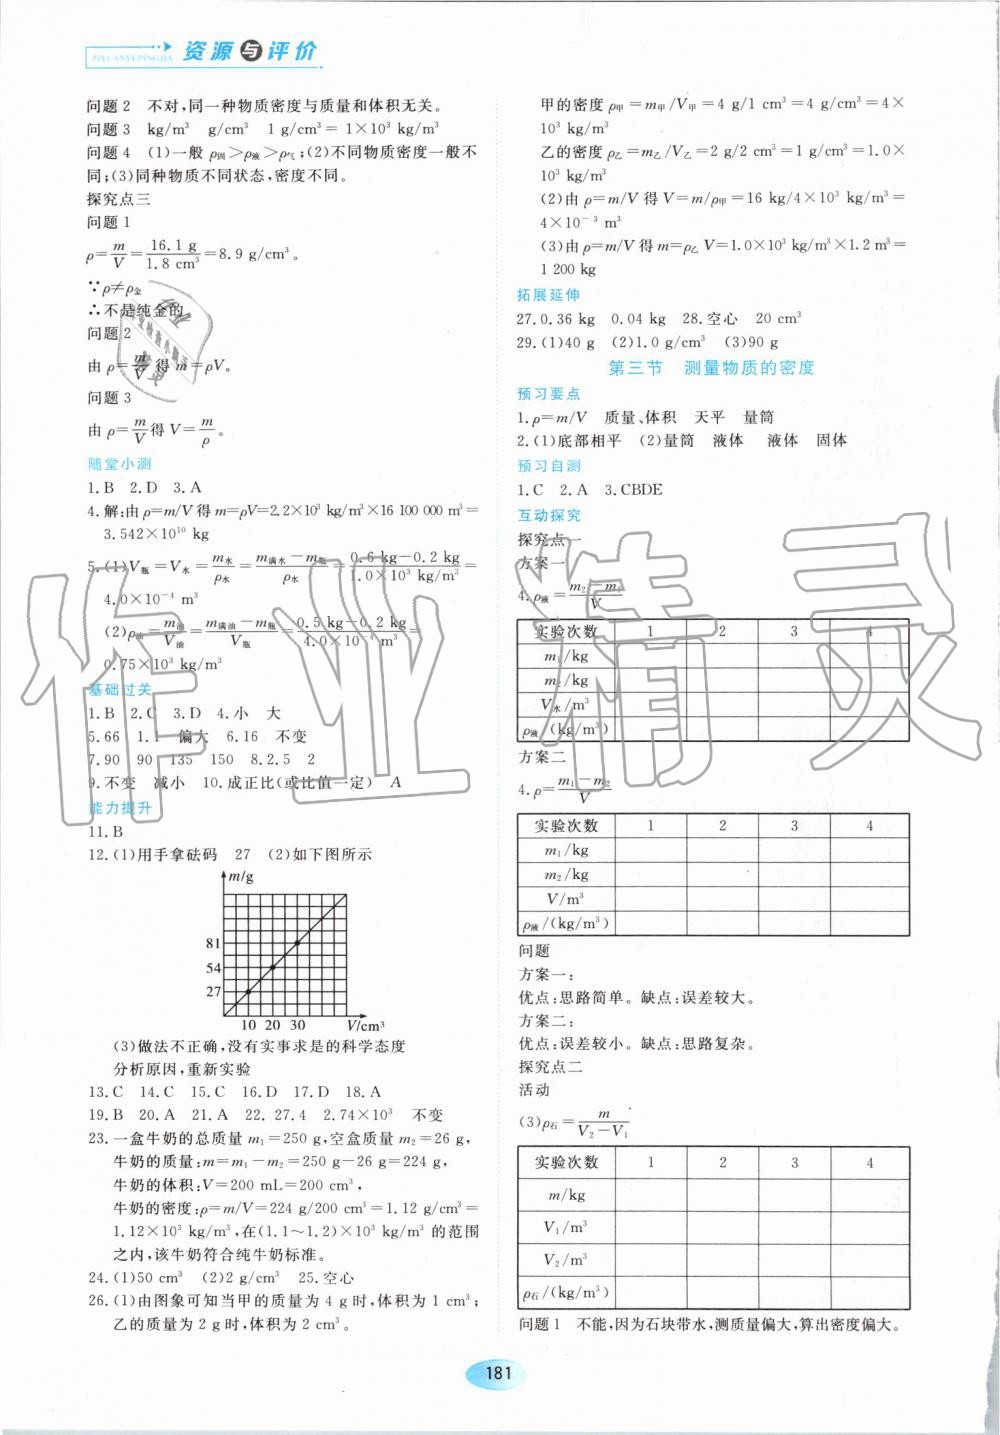 ZIYUANYUPINGJIA 资源与评价
问题2 不对,同一种物质密度与质量和体积无关。
问题3 kg/m³ g/cm³ 1 g/cm³= 1×10³ kg/m³
问题4 (1)一般 ρ固>ρ液>ρ气;(2)不同物质密度一般不
同;(3)同种物质不同状态,密度不同。
探究点三
问题1
ρ=m/V=16.1 g/1.8 cm³=8.9 g/cm³。
∵ρ≠ρ金
∴不是纯金的。
问题2
由 ρ=m/V 得 m=ρV。
问题3
由 ρ=m/V得 V=m/ρ。
随堂小测
1.B 2.D 3.A
4.解:由 ρ=m/V 得 m=ρV=2.2×10³ kg/m³×16 100 000 m³=
3.542×10¹⁰ kg
5.(1)V瓶=V水=m水/ρ水=(m满水-m瓶)/ρ水=(0.6 kg-0.2 kg)/(1.0×10³ kg/m³)=
4.0×10⁻⁴ m³
(2)ρ油=m油/V油=(m满油-m瓶)/V瓶=(0.5 kg-0.2 kg)/(4.0×10⁻⁴ m³)=
0.75×10³ kg/m³
基础过关
1.B 2.C 3.D 4.小 大
5.66 1.1 偏大 6.16 不变
7.90 90 135 150 8.2.5 2
9.不变 减小 10.成正比(或比值一定) A
能力提升
11.B
12.(1)用手拿砝码 27 (2)如下图所示
m/g
81
54
27
10 20 30 V/cm³
(3)做法不正确,没有实事求是的科学态度
分析原因,重新实验
13.C 14.C 15.C 16.D 17.D 18.A
19.B 20.A 21.A 22.27.4 2.74×10³ 不变
23.一盒牛奶的总质量 m₁=250 g,空盒质量 m₂=26 g,
牛奶的质量:m=m₁-m₂=250 g-26 g=224 g,
牛奶的体积:V=200 mL=200 cm³,
牛奶的密度:ρ=m/V=224 g/200 cm³=1.12 g/cm³=
1.12×10³ kg/m³,在(1.1~1.2)×10³ kg/m³ 的范围
之内,该牛奶符合纯牛奶标准。
24.(1)50 cm³ (2)2 g/cm³ 25.空心
26.(1)由图象可知当甲的质量为 4 g时,体积为 1 cm³;
乙的质量为 2 g时,体积为 2 cm³。
甲的密度 ρ甲=m甲/V甲=4 g/1 cm³=4 g/cm³=4×
10³ kg/m³
乙的密度 ρ乙=m乙/V乙=2 g/2 cm³=1 g/cm³=1.0×
10³ kg/m³
(2)由 ρ=m/V 得 V=m/ρ甲=16 kg/4×10³ kg/m³=
4×10⁻³ m³
(3)由 ρ=m/V 得 m=ρ乙 V=1.0×10³ kg/m³×1.2 m³=
1 200 kg
拓展延伸
27.0.36 kg 0.04 kg 28.空心 20 cm³
29.(1)40 g (2)1.0 g/cm³ (3)90 g
第三节 测量物质的密度
预习要点
1.ρ=m/V 质量、体积 天平 量筒
2.(1)底部相平 (2)量筒 液体 液体 固体
预习自测
1.C 2.A 3.CBDE
互动探究
探究点一
方案一
4.ρ液=(m₂-m₁)/V
实验次数 1 2 3 4
m₁/kg
m₂/kg
V水/m³
ρ液/(kg/m³)
方案二
4.ρ=(m₁-m₂)/V
实验次数 1 2 3 4
m₁/kg
m₂/kg
V/m³
ρ液/(kg/m³)
问题
方案一:
优点:思路简单。缺点:误差较大。
方案二:
优点:误差较小。缺点:思路复杂。
探究点二
活动
(3)ρ石=m/(V₂-V₁)
实验次数 1 2 3 4
m/kg
V₁/m³
V₂/m³
ρ石/(kg/m³)
问题1 不能,因为石块带水,测质量偏大,算出密度偏大。
181
作业精灵